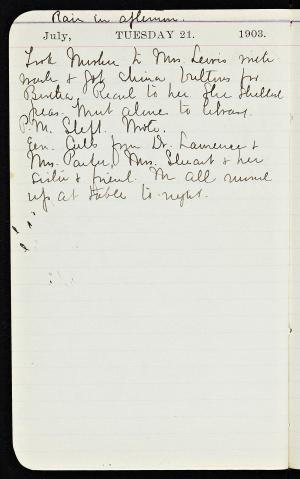 Rain in afternoon.
July, TUESDAY 21. 1903.
Took Muslin to Mrs. Lewis with
work & got china buttons for
Bertha. Read to her. She shelled
peas. Went alone to library.
P.M. Slept. Wrote.
Eve. Calls from Dr. Lawrence &
Mrs. Parker, Mrs. Stuart & her
sister & friend. We all moved
up at table to-night.